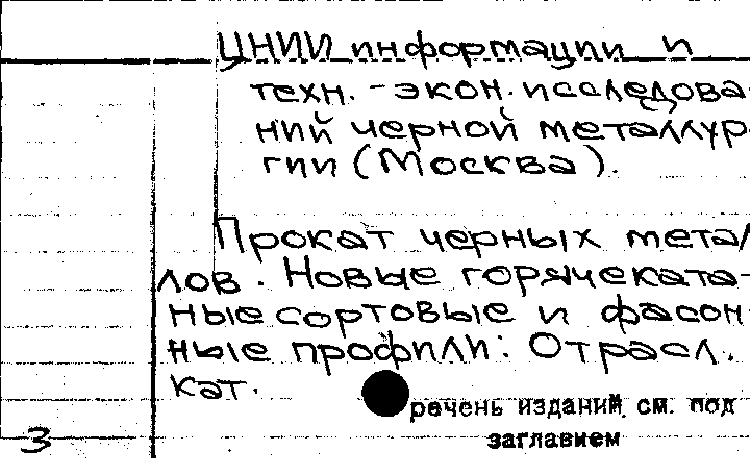 ЦНИИ информации и
техн. - экон. исследова-
ний черной металлур-
гии (Москва).
Прокат черных метал-
лов. Новые горячеката-
ные сортовые и фасон-
ные профили: Отрасл.
кат.
речень изданий см. под
заглавием
3